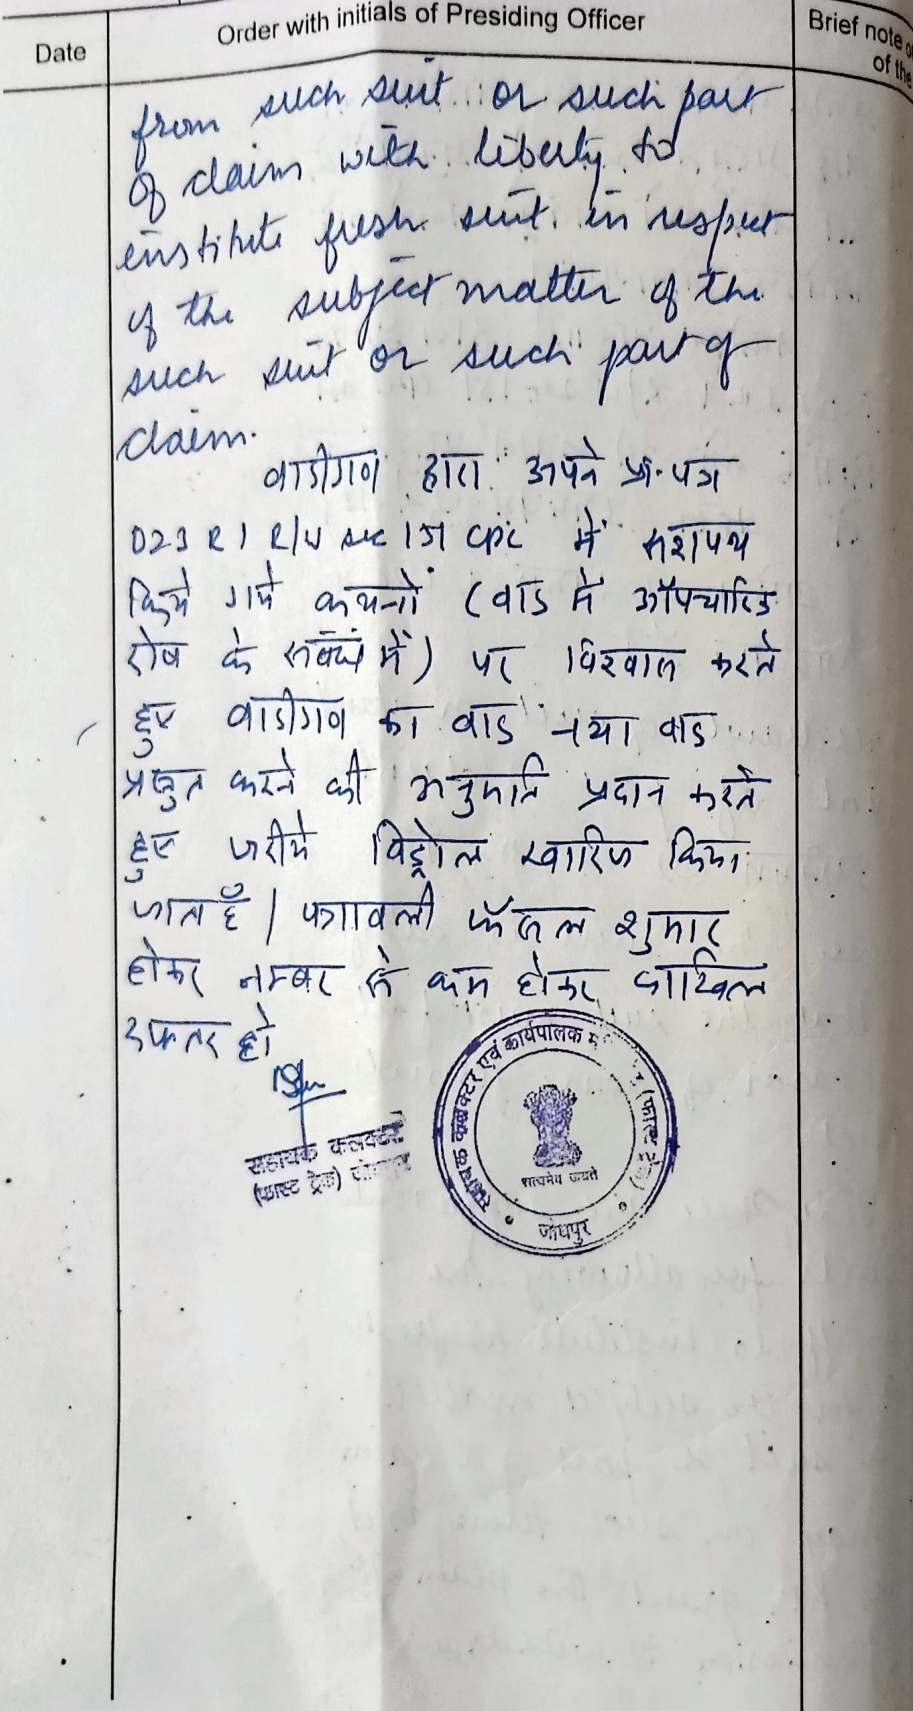 Date
Order with initials of Presiding Officer
Brief note
of the
from such suit or such part
of claim with liberty to
institute fresh suit in respect
of the subject matter of the
such suit or such part of
claim.
वादीगण द्वारा अपने प्रा. पत्र
O23 R1 R/w sec 151 cpc में सशपथ
किये गये कथनों (वाद में औपचारिक
दोष के संबंध में) पर विश्वास करते
हुए वादीगण का वाद नया वाद
प्रस्तुत करने की अनुमति प्रदान करते
हुए जरीये विड्रोल खारिज किया
जाता है। पत्रावली फैसल शुमार
होकर नम्बर से कम होकर दाखिल
दफ्तर हो
सहायक कलक्टर
(फास्ट ट्रेक) जोधपुर
सहायक कलक्टर एवं कार्यपालक (फास्ट ट्रेक)
सत्यमेव जयते
जोधपुर